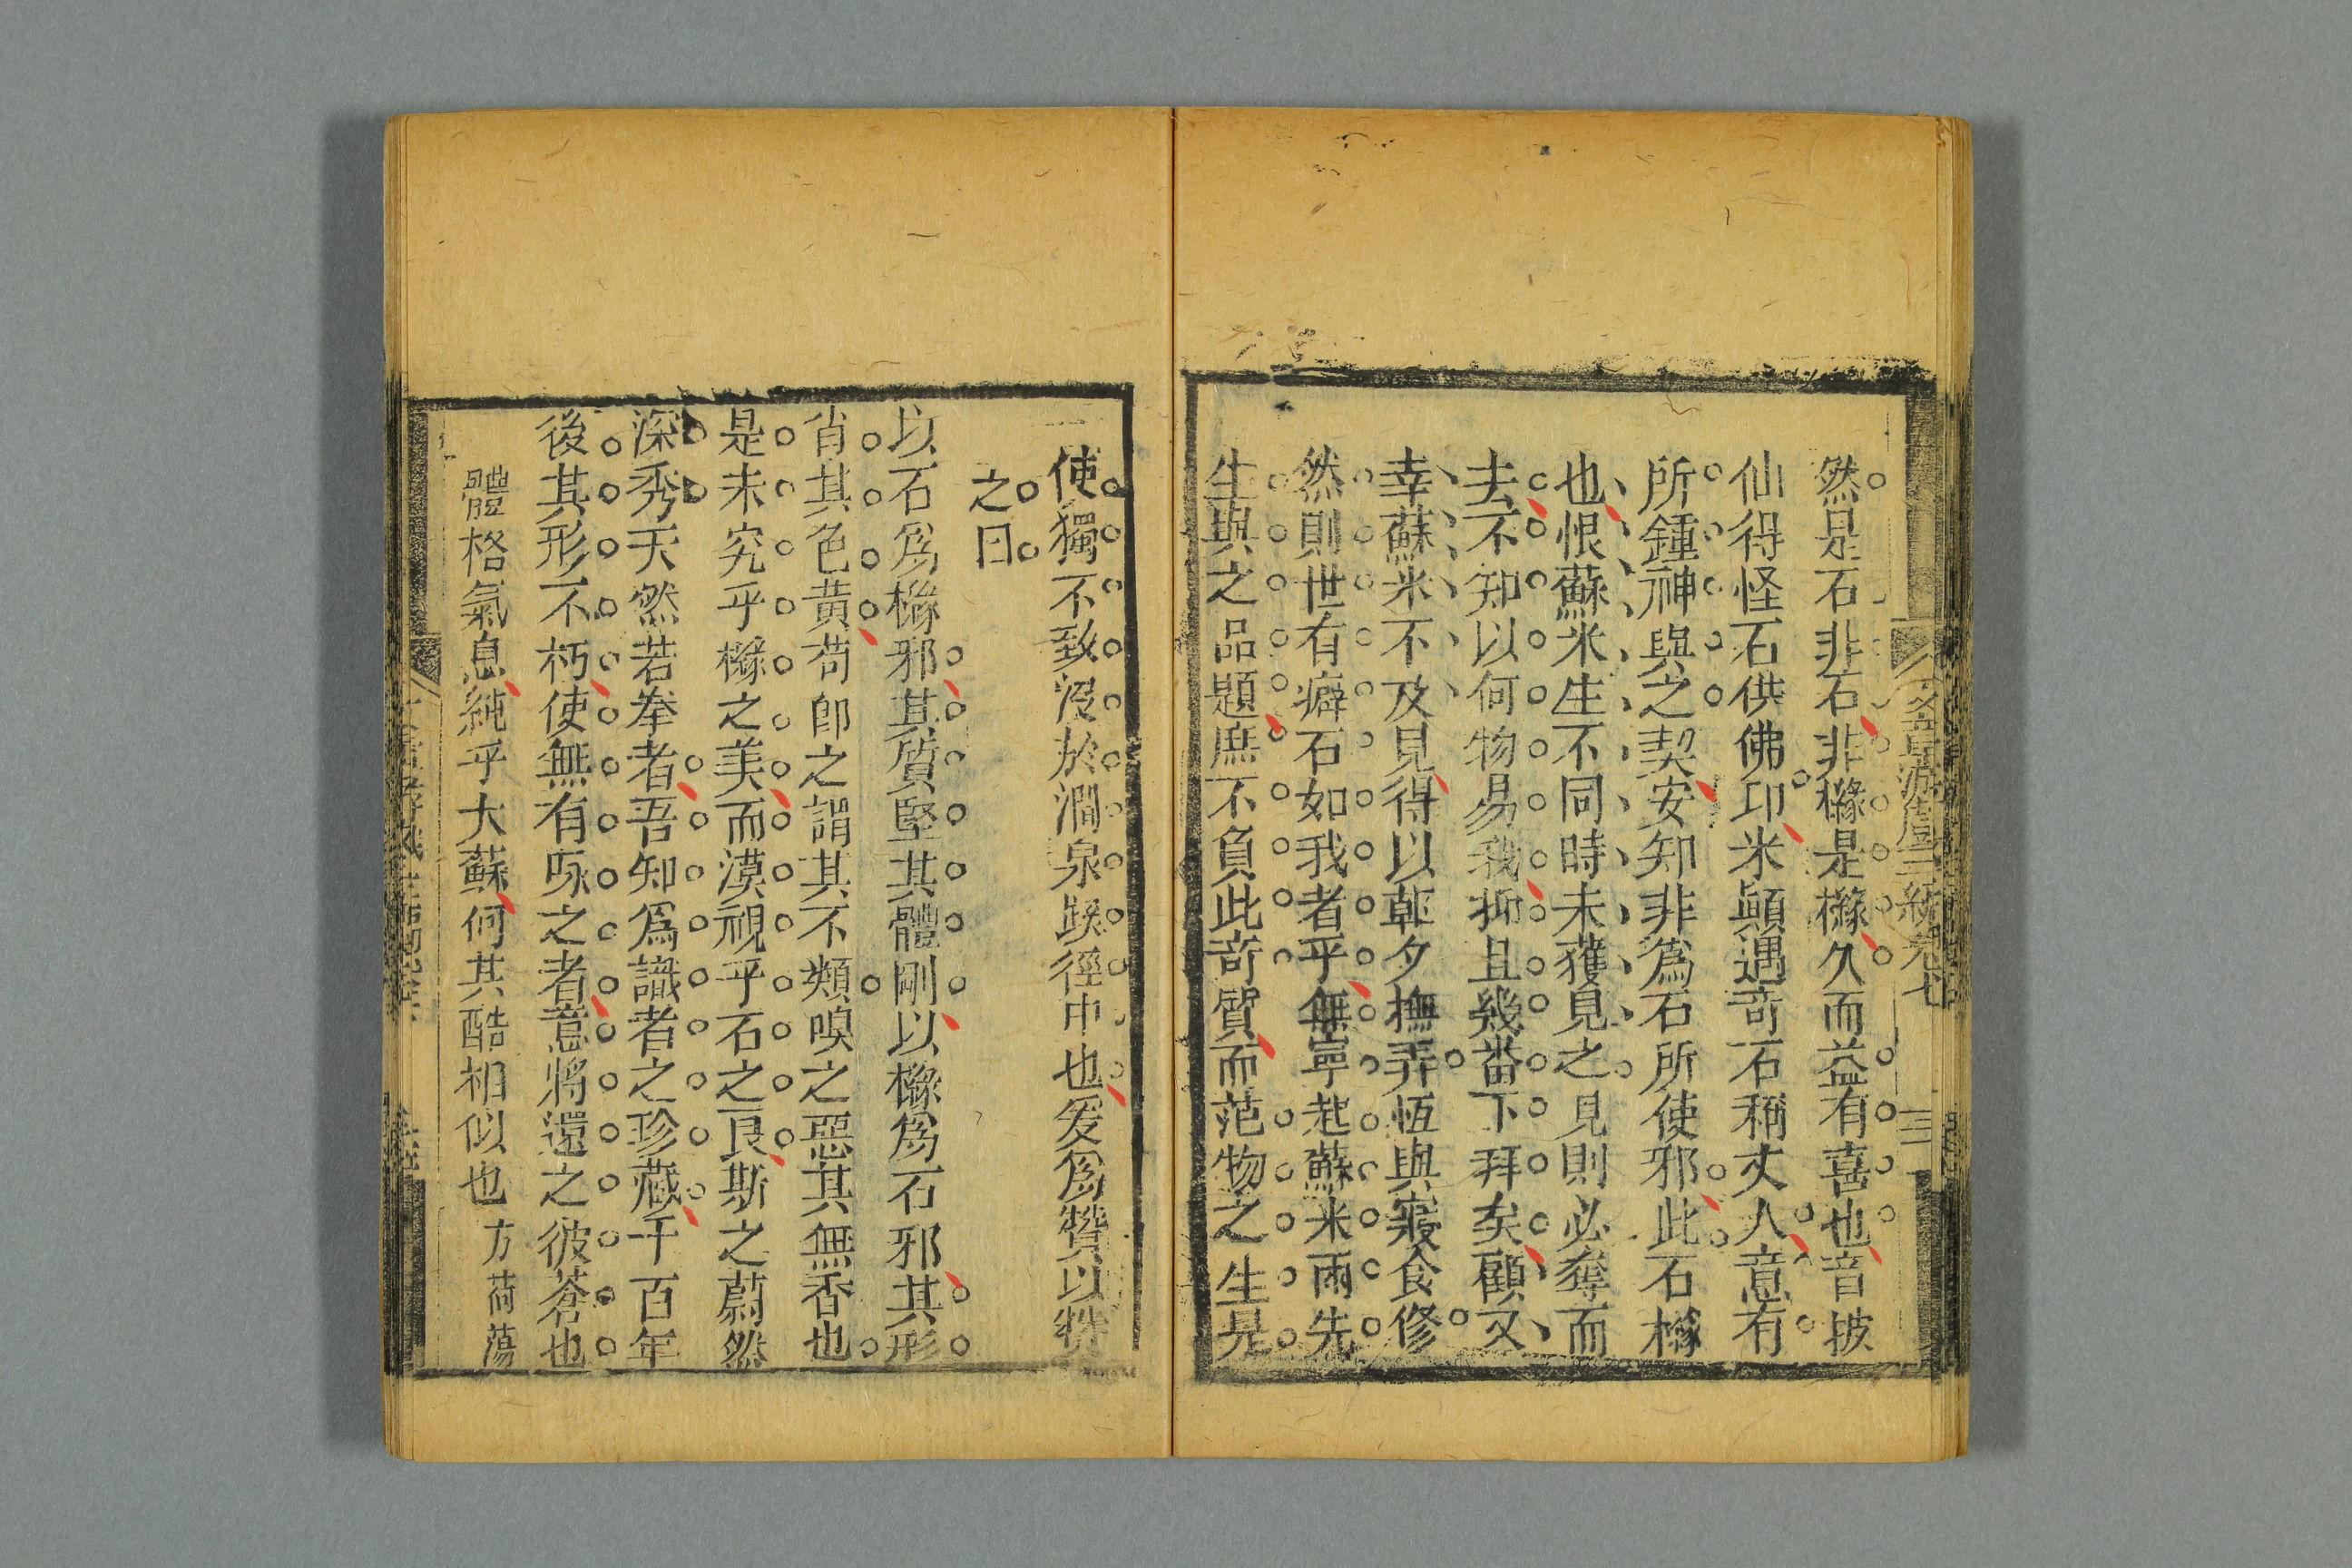 然是石非石非櫞是櫞久而益有喜也音披
仙得怪石供佛印米顚遇奇石稱丈人意有
所鍾神與之契安知非爲石所使邪此石櫞
也恨蘇米生不同時未獲見之見則必奪而
去不知以何物易我抑且幾畨下拜矣顧又
幸蘇米不及見得以朝夕撫弄恆與寢食修
然則世有癖石如我者乎無寧起蘇米兩先
生與之品題庶不負此奇質而范物之生是
使獨不致沒於澗泉蹊徑中也爰爲贊以
之曰
以石爲櫞邪其質堅其體剛以櫞爲石邪其形
肖其色黃苟卽之謂其不類嗅之惡其無香也
是未究乎櫞之美而漠視乎石之良斯之蔚然
深秀天然若拳者吾知爲識者之珍藏千百年
後其形不朽使無有咏之者意將還之彼蒼也
體格氣息純乎大蘇何其酷相似也 方荷蕩